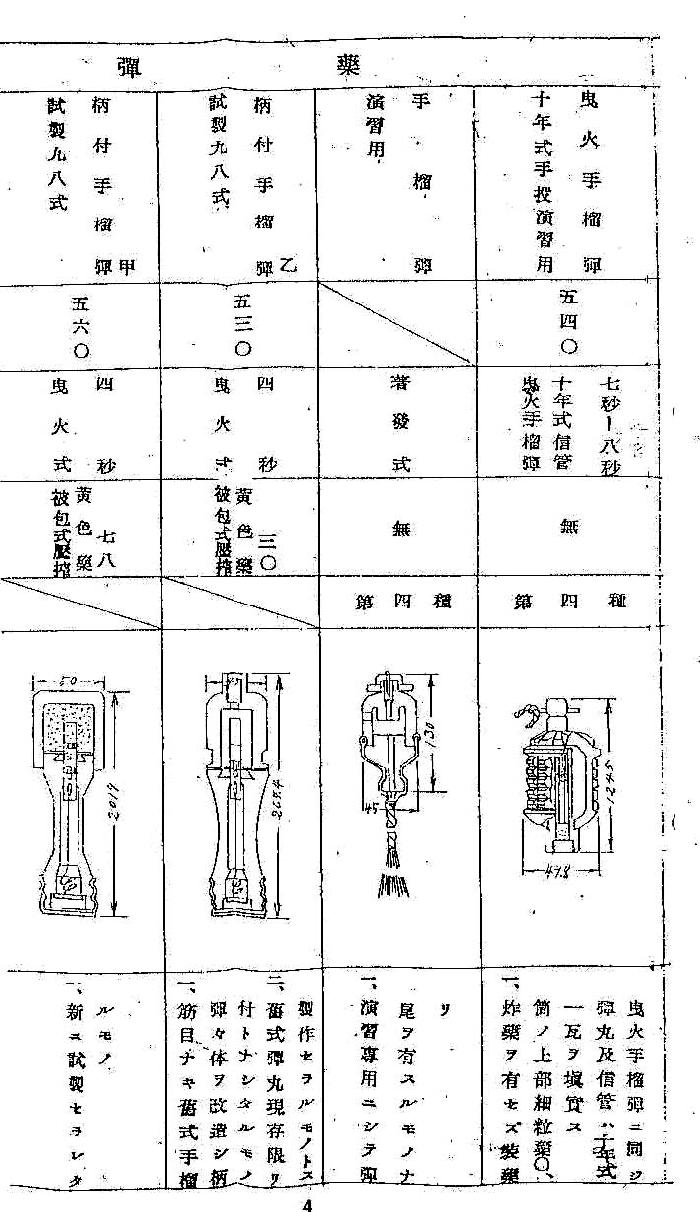 彈藥
試製九八式
柄付手榴彈
甲
五六〇
曳火式
四秒
被包式壓搾
黄色藥
七八
50
201.9
一、新ニ試製セラレタ
ルモノ
試製九八式
柄付手榴彈
乙
五三〇
曳火式
四秒
被包式壓搾
黄色藥
三〇
205.4
一、筋目ナキ舊式手榴
彈々体ヲ改造シ柄
付トナシタルモノ
二、舊式彈丸現存限リ
製作セラルモノトス
演習用
手榴彈
著發式
無
第四種
130
45
一、演習専用ニシテ彈
尾ヲ有スルモノナ
リ
十年式手投演習用
曳火手榴彈
五四〇
曳火手榴彈
十年式信管
七秒ー八秒
無
第四種
124.5
47.8
一、炸藥ヲ有セズ裝藥
筒ノ上部細粒藥〇、
一瓦ヲ塡實ス
彈丸及信管ハ十年式
曳火手榴彈ニ同ジ
4